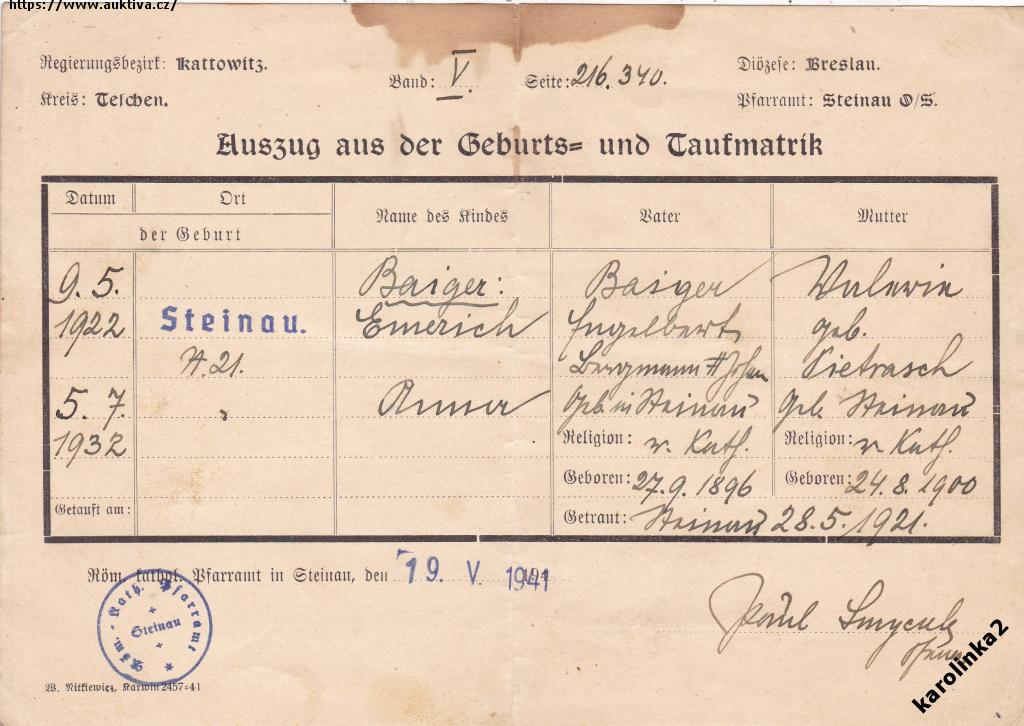 https://www.auktiva.cz/
Regierungsbezirk: Kattowitz.
Kreis: Teschen.
Band: V.
Seite: 216. 340.
Diözese: Breslau.
Pfarramt: Steinau O/S.
Auszug aus der Geburts- und Taufmatrik
Datum
Ort
der Geburt
Name des Kindes
Vater
Mutter
9. 5.
1922
Steinau.
N. 21.
Baiger:
Emerich
Baiger
Engelbert
Bergmann Johann
geb. in Steinau
Valerie
geb.
Pietrasch
geb. Steinau
5. 7.
1932
Religion: r. Kath.
Religion: r. Kath.
Geboren: 27. 9. 1896
Geboren: 24. 8. 1900
Getauft am:
Getraut: Steinau 28. 5. 1921.
Röm. kathol. Pfarramt in Steinau, den 19. V. 1941
Röm.-Kath. Pfarramt
Steinau
Paul
W. Nitkiewicz, Karwin 2457-41
karolinka2